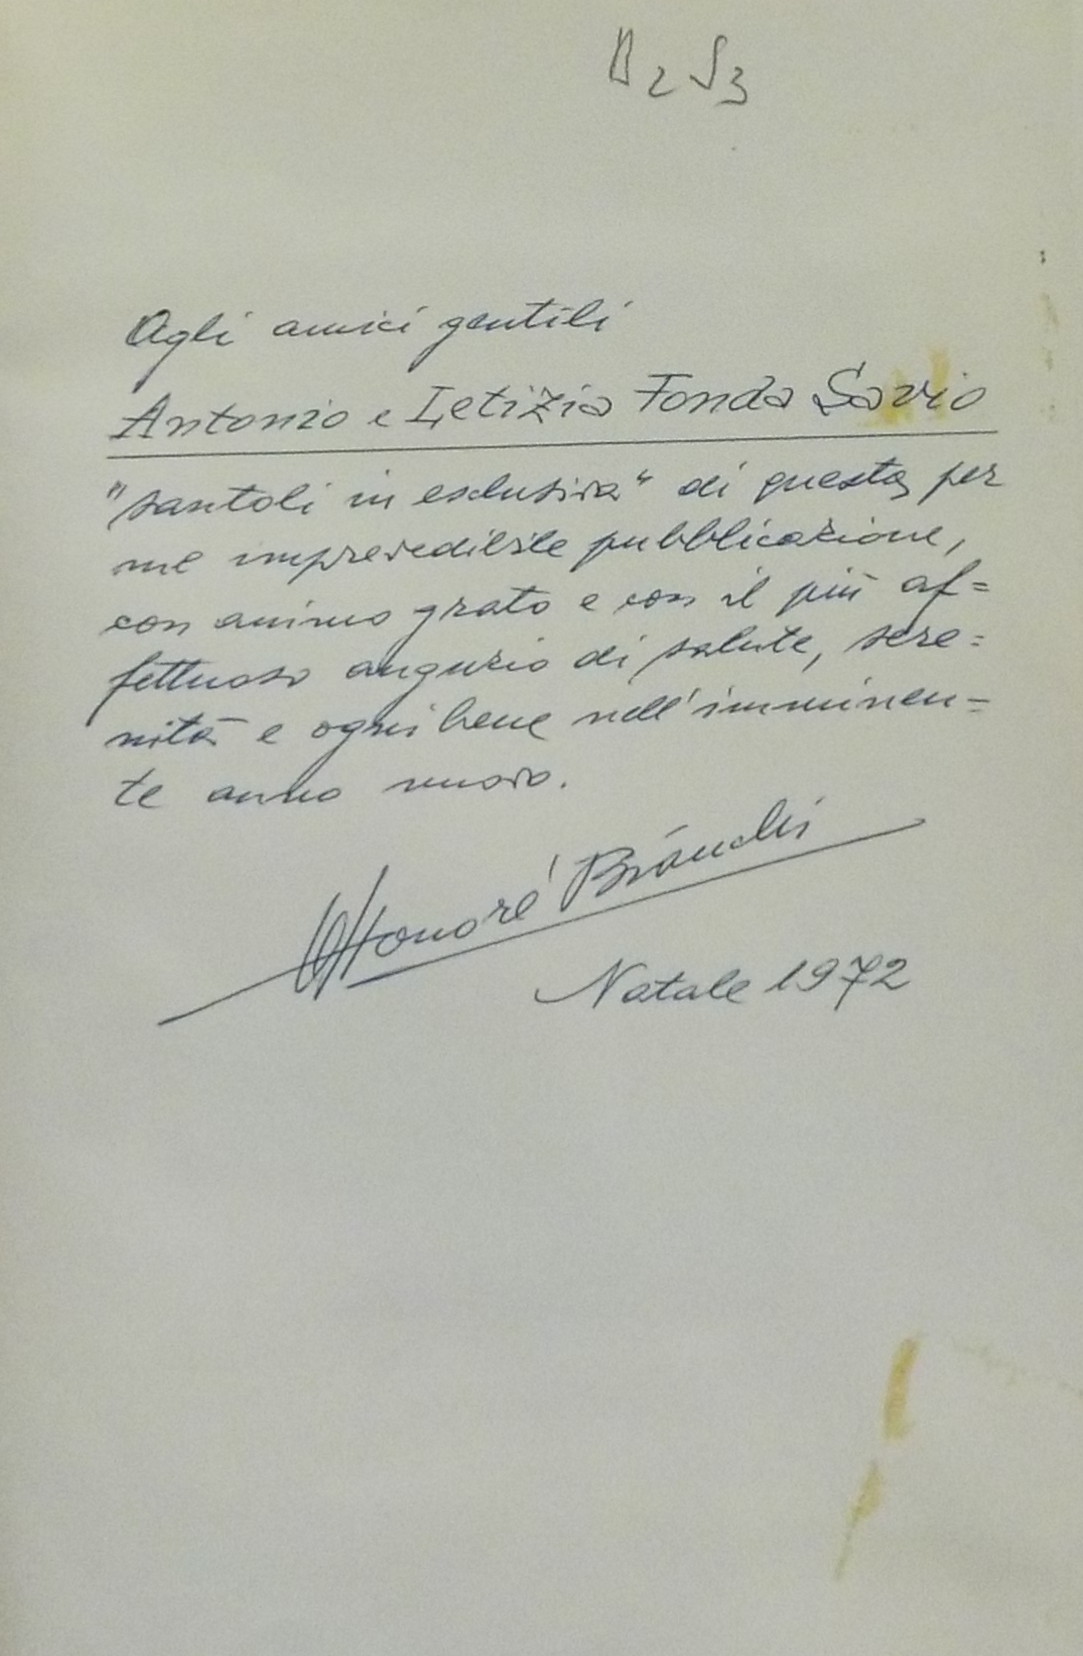 B2 S3
Agli amici gentili
Antonio e Letizia Fonda Savio
"santoli in esclusiva" di questa, per
me imprevedibile pubblicazione,
con animo grato e con il più af=
fettuoso augurio di salute, sere=
nità e ogni bene nell'imminen=
te anno nuovo.
Honoré Bianchi
Natale 1972